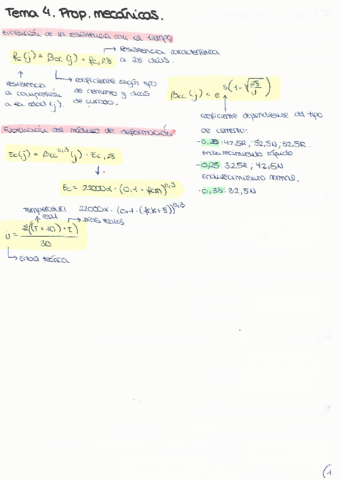 Tema 4. Prop. mecánicas.
Evolución de la resistencia con el tiempo
fc(j) = βcc(j) · fc,28 → resistencia característica
a 28 días.
resistencia
a compresión
a la edad (j).
coeficiente según tipo
de cemento y días
de curado.
βcc(j) = e^s(1-√28/j)
coeficiente dependiente del tipo
de cemento:
-0,20: 42,5R, 52,5N, 52,5R.
endurecimiento rápido
-0,25: 32,5R, 42,5N
endurecimiento normal.
-0,38: 32,5N
Evolución de módulo de deformación
Ec(j) = βcc^0,3(j) · Ec,28
Ec = 22000α · (0,1 · fcm)^0,3
22000α · (0,1 · (fck+8))^0,3
Temperatura
real
días reales
j = Σ((T+10)·t)
30
edad teórica